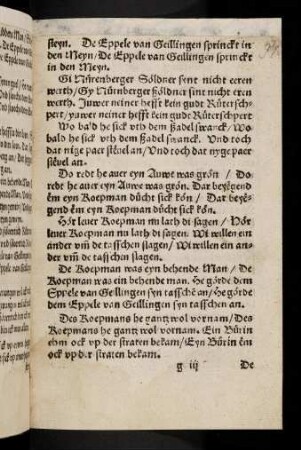 steyn. De Eppele van Geillingen sprinckt in
den Meyn / De Eppele van Geilingen sprinckt
in den Meyn.
Gi Nürenberger Söldner sent nicht eeren
werth / Gy Nürnberger Söldner sint nicht eren
werth. Juwer neiner hefft kein gude Rüterschwert
pert / yuwer neiner hefft kein gude Rüterschpert.
Wo ba'd he sick vth dem Sadel swanck / Wo
bald he sick vth dem Sadel swanck. Vnd toch
dat nige paer stevel an / Vnd toch dat nyge paer
stevel an.
Do redt he auer eyn Auwe was grön / Do
redt he auer eyn Auwe was grön. Dar beyegend
em eyn Koepman düchte sick kön / Dar beyegend
em eyn Koepman düchte sick kön.
Hör leuer Koepman nu lath di sagen / Hör
leuer Koepman nu lath di sagen. Wi willen ein
ander vm de tasschen slagen / Wi willen ein ander
vm de tasschen slagen.
De Koepman was eyn behende Man / De
Koepman was ein behende man. He görde dem
Eppele van Geillingen syn tassche an / He görde
dem Eppele van Geillingen syn tasschen an.
Des Koepmans he gantz wol vornam / Des
Koepmans he gantz wol vornam. Ein Bürin
ehm ock vp der straten bekam / Eyn Bürin em
ock vp der straten bekam.
g iij De